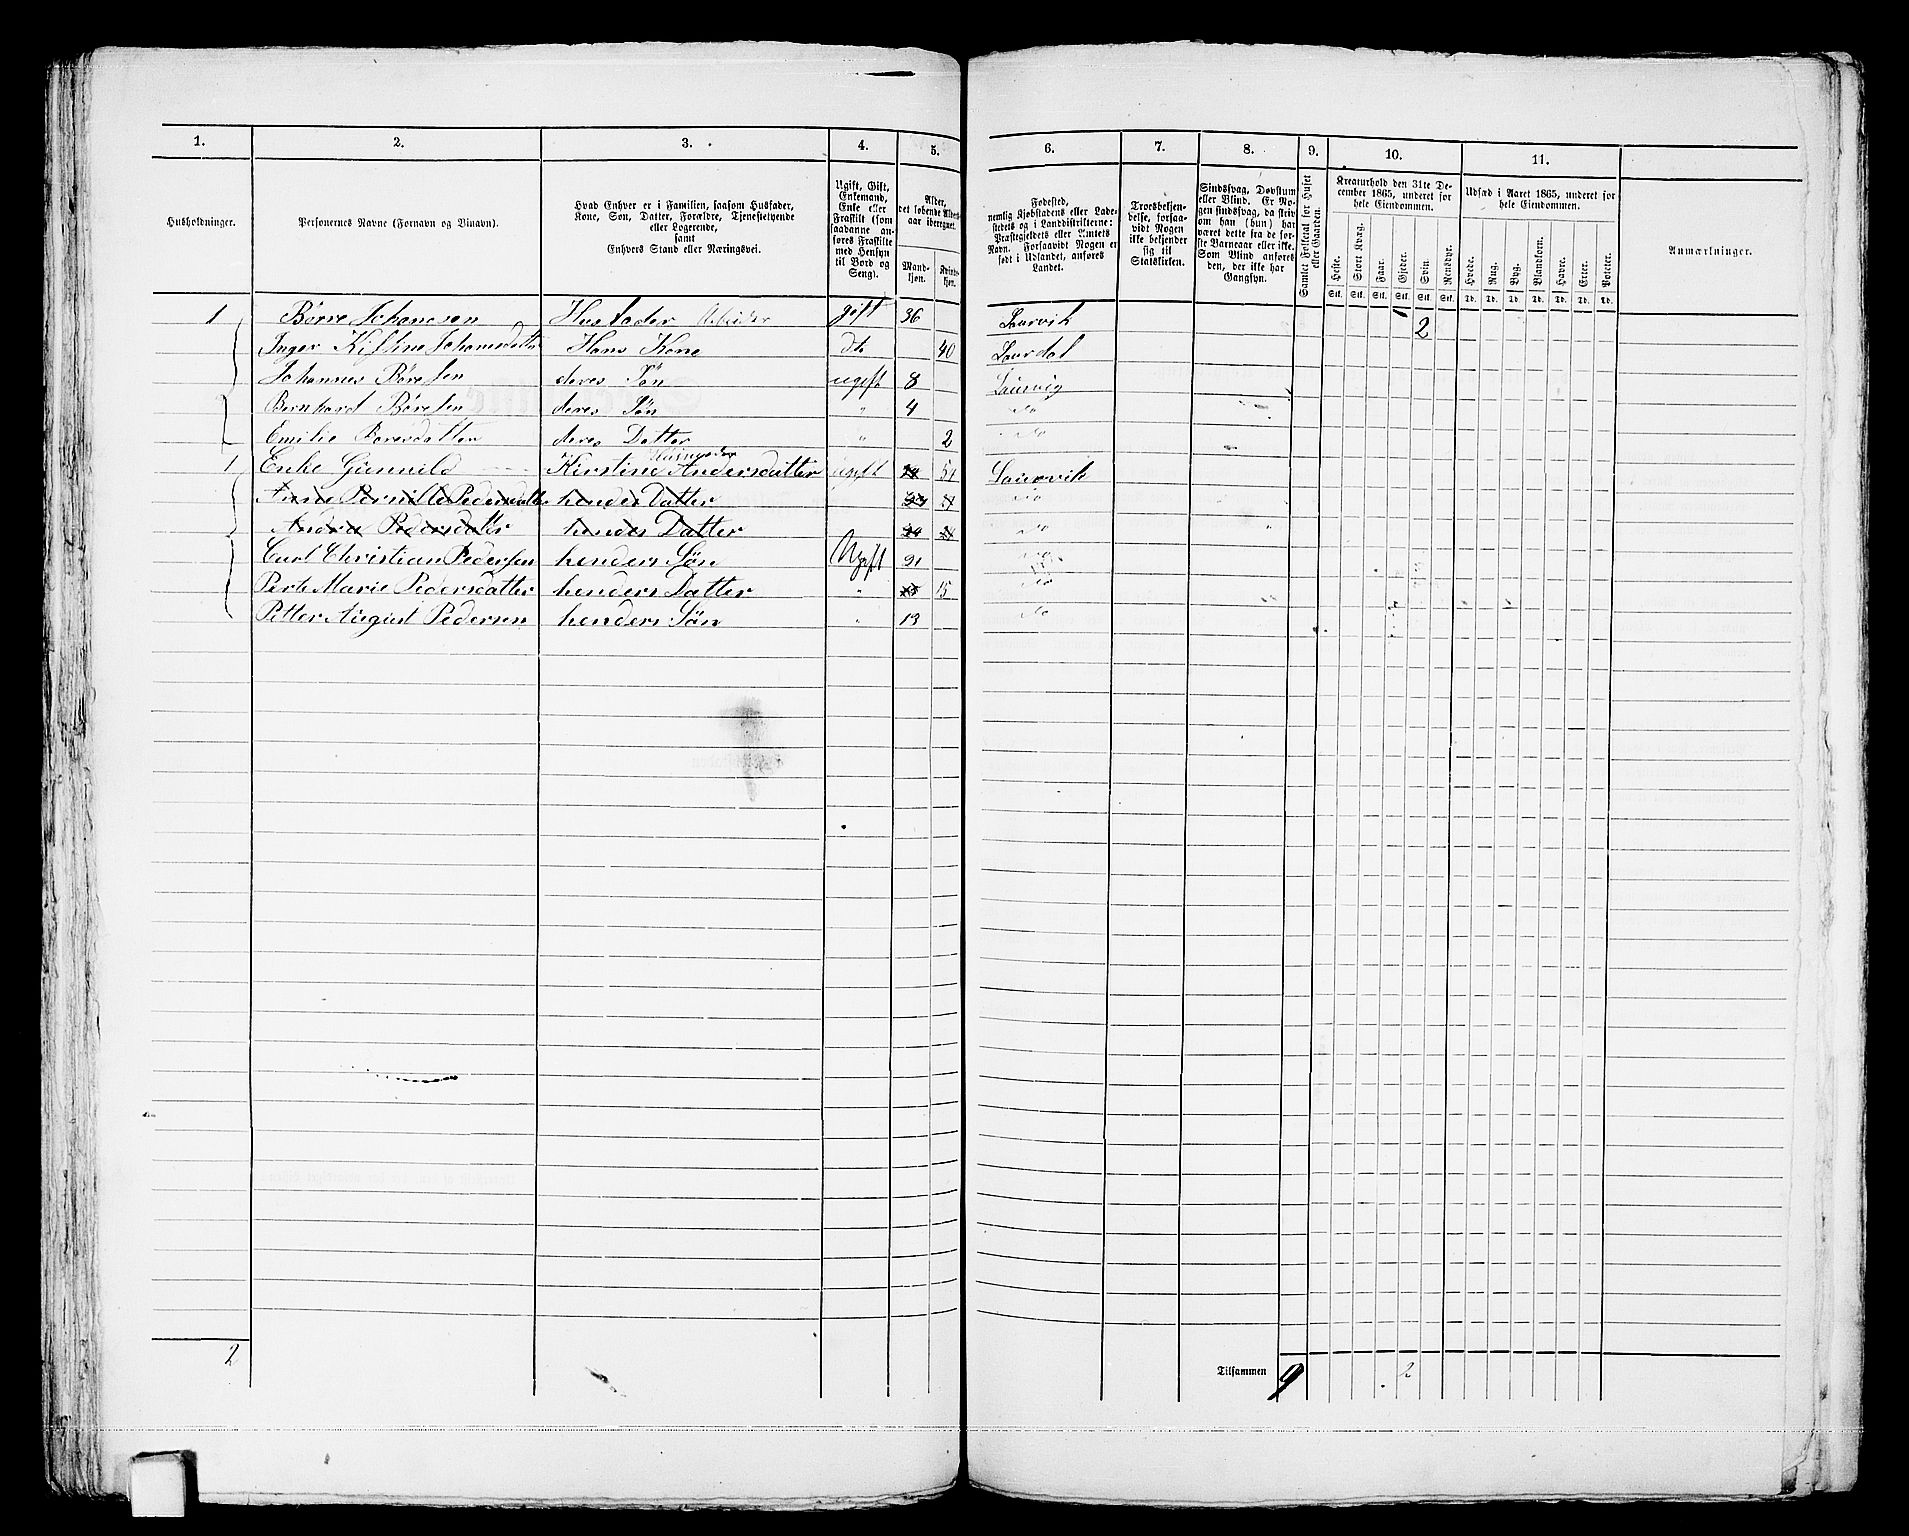 1. 2. 3. 4. 5. 6. 7. 8. 9. 10. 11.
Husholdninger.
Personernes Navne (Fornavn og Binavn).
Hvad Enhver er i Familien, saasom Husfader,
Kone, Søn, Datter, Forældre, Tjenestetyende
eller Logerende,
samt
Enhvers Stand eller Næringsvei.
Ugift, Gift,
Enkemand,
Enke eller
Fraskilt (som
saadanne an-
føres Fraskilte
med Hensyn
til Bord og
Seng).
Alder,
det løbende Alders-
aar iberegnet.
Mand-
kjøn.
Kvinde-
kjøn.
Fødested,
nemlig Kjøbstadens eller Lade-
stedets og i Landdistrikterne:
Præstegjeldets eller Amtets
Navn. Forsaavidt Nogen er
født i Udlandet, anføres
Landet.
Troesbekjen-
delse, forsaa-
vidt Nogen
ikke bekjender
sig til
Statskirken.
Sindssvag, Døvstum
eller Blind. Er No-
gen sindssvag, da skriv
om han (hun) har
været dette fra de før-
ste Barneaar eller ikke.
Som Blind anføres
den, der ikke har
Gangsyn.
Samlet Folketal for Huset
eller Gaarden.
Kreaturhold den 31te De-
cember 1865, underet for
hele Eiendommen.
Heste. Stort Kvæg. Faar. Gjeder. Svin. Rensdyr.
Stk. Stk. Stk. Stk. Stk. Stk.
Udsæd i Aaret 1865, underet for
hele Eiendommen.
Hvede. Rug. Byg. Blandkorn. Havre. Erter. Poteter.
Td. Td. Td. Td. Td. Td. Td.
Anmærkninger.
1 Børre Johannsen Husfader Arbeider gift 36 Laurvik 2
Inger Kistine Johannesdatter Hans Kone do 40 Laurdal
Johannes Børesen deres Søn ugift 8 Laurvig
Bernhard Børesen deres Søn " 4 do
Emilie Boresdatter deres Datter " 2 do
1 Enke Gunnild Kirstine Andersdatter ugift 51 Laurvik
Anne Pernille Pedersdatter hendes Datter do
Andrea Pedersdatter hendes Datter do
Carl Christian Pedersen henders Søn Ugift 21 do
Perte Marie Pedersdatter henders Datter " 15 do
Petter August Pedersen henders Søn " 13 do
2 Tilsammen 9 2